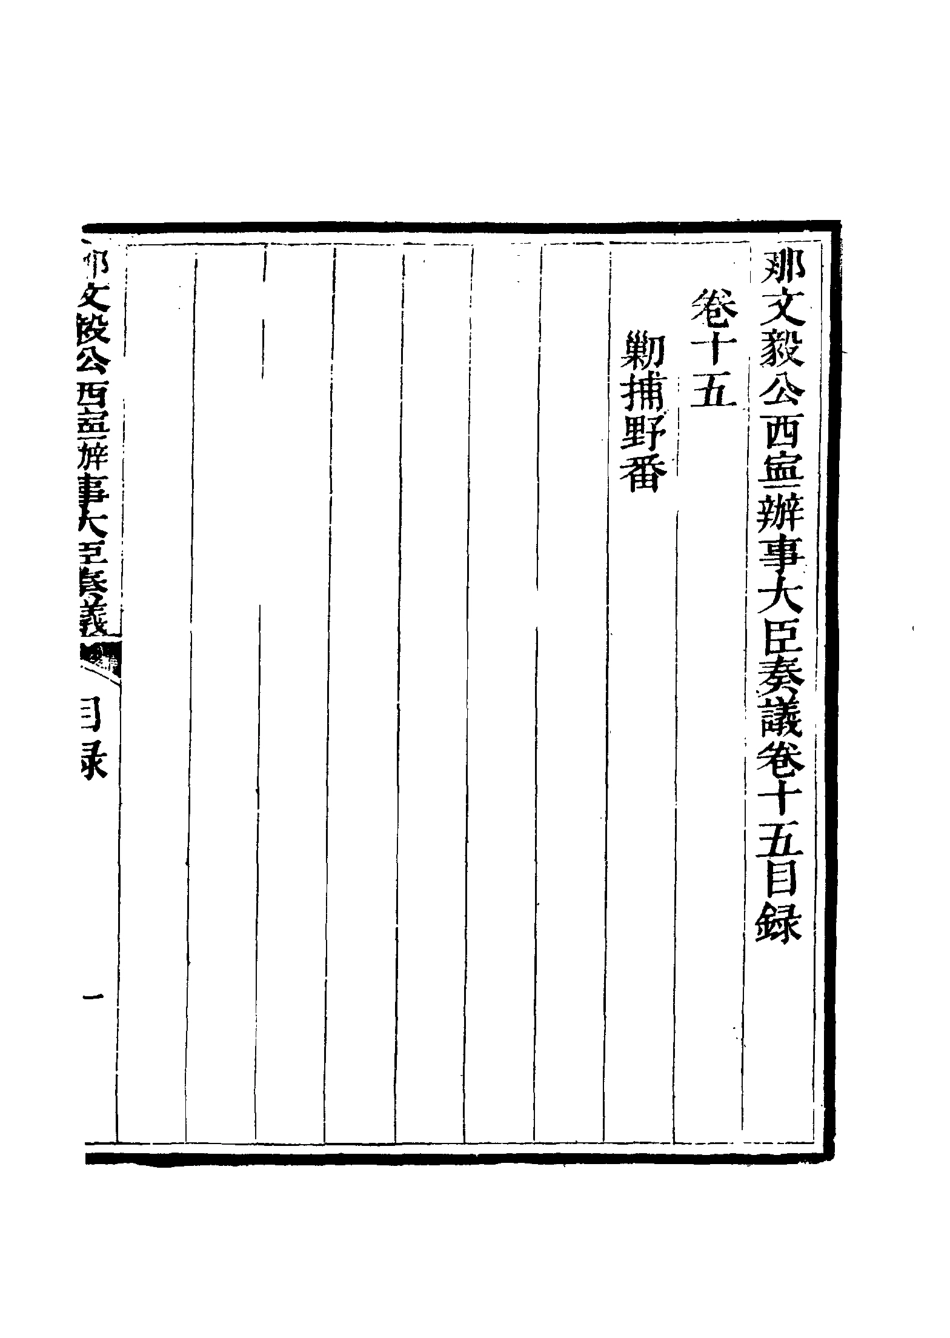 那文毅公西寍辦事大臣奏議卷十五目録
卷十五
勦捕野番
那文毅公西寍辦事大臣奏議
目録
一